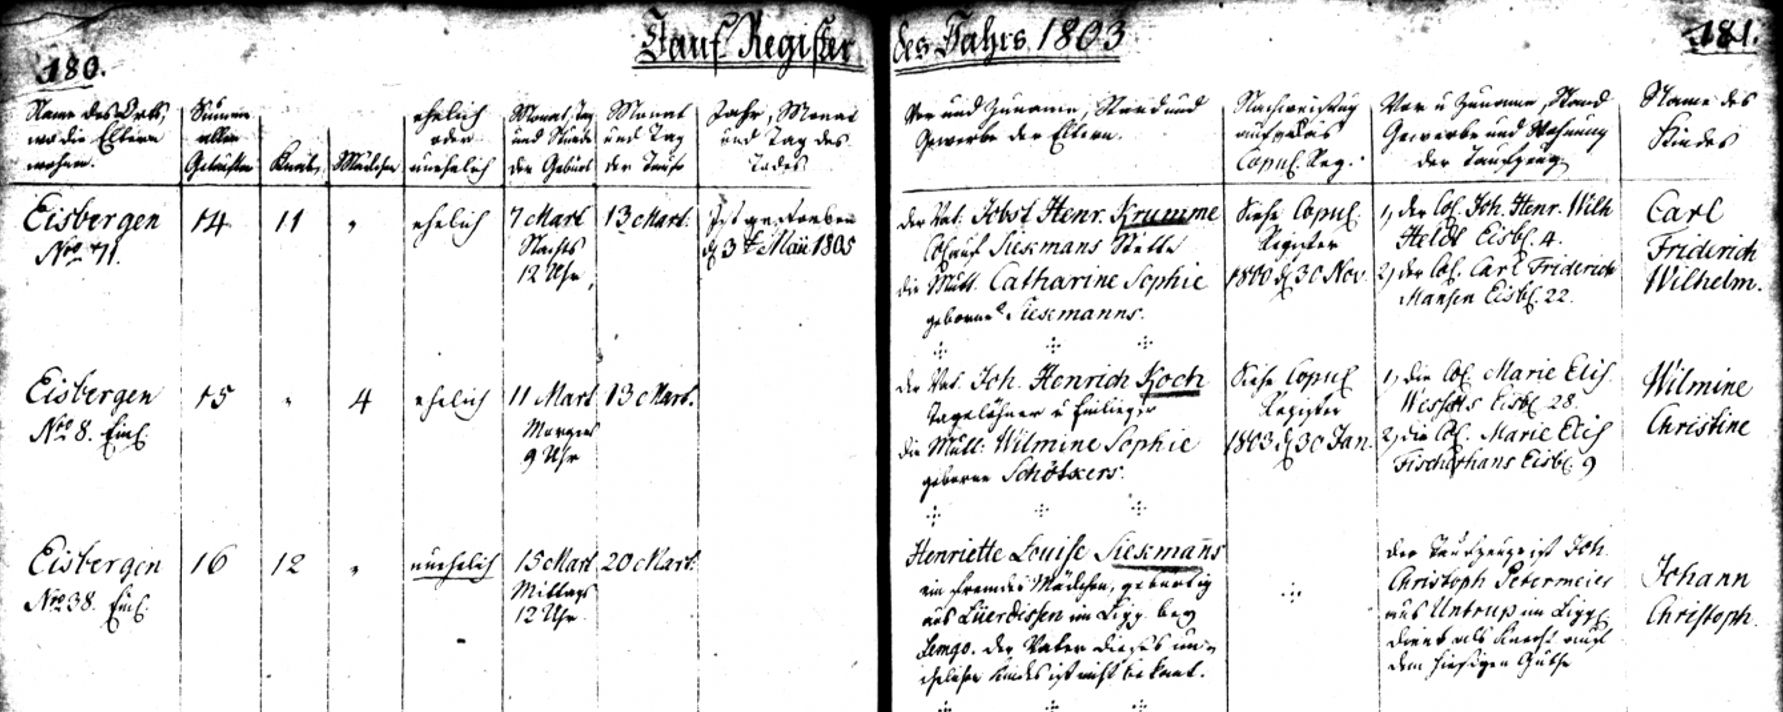 180.
Tauf Register
des Jahrs 1803
181.
Name des Orts,
wo die Eltern
wohnen.
Summe
aller
Getauften
Knab.
Mädchen
ehelich
oder
unehelich
Monat, Tag
und Stunde
der Geburt
Monat
und Tag
der Taufe
Jahr, Monat
und Tag des
Todes
Vor und Zuname, Stand und
Gewerbe der Eltern.
Nachweisung
auf das
Copul. Reg.
Vor u Zuname, Stand
Gewerbe und Wohnung
der Taufzeug.
Name des
Kindes
Eisbergen
No 71.
14
11
"
ehelich
7 Mart
Nachts
12 Uhr,
13 Mart.
Ist gestorben
d 3t Maii 1805
der Vat. Jobst Henr. Krumme
Col. auf Siekmans Stette
die Mutt. Catharine Sophie
geborne Siekmanns.
Siehe Copul.
Register
1800 d 30 Nov.
1, der Col. Joh. Henr. Wilh
Heldt Eisb. 4.
2, der Col. Carl Friderich
Mansen Eisb. 22.
Carl
Friderich
Wilhelm.
Eisbergen
No 8. Einl.
15
"
4
ehelich
11 Mart
Morgens
9 Uhr
13 Mart.
der Vat. Joh. Henrich Koch
Tagelöhner u Einlieger
die Mutt: Wilmine Sophie
geborne Schötkers.
Siehe Copul
Register
1803 d 30 Jan.
1, die Col. Marie Elis.
Eisb. 28.
2, die Col. Marie Elis
Eisb. 9
Wilmine
Christine
Eisbergen
No 38. Einl.
16
12
"
unehelich
15 Mart
Mittags
12 Uhr
20 Mart.
Henriette Louise Siekmans
ein fremdes Mädchen, gebürtig
aus Lüerdissen im Lipp. bey
Lemgo. der Vater dieses un=
ehelichen Kindes ist nicht bekant.
der Taufzeuge ist Joh.
Christoph Petermeier
aus Untrup im Lipp.
dient als Knecht auf
dem hiesigen Guthe
Johann
Christoph.